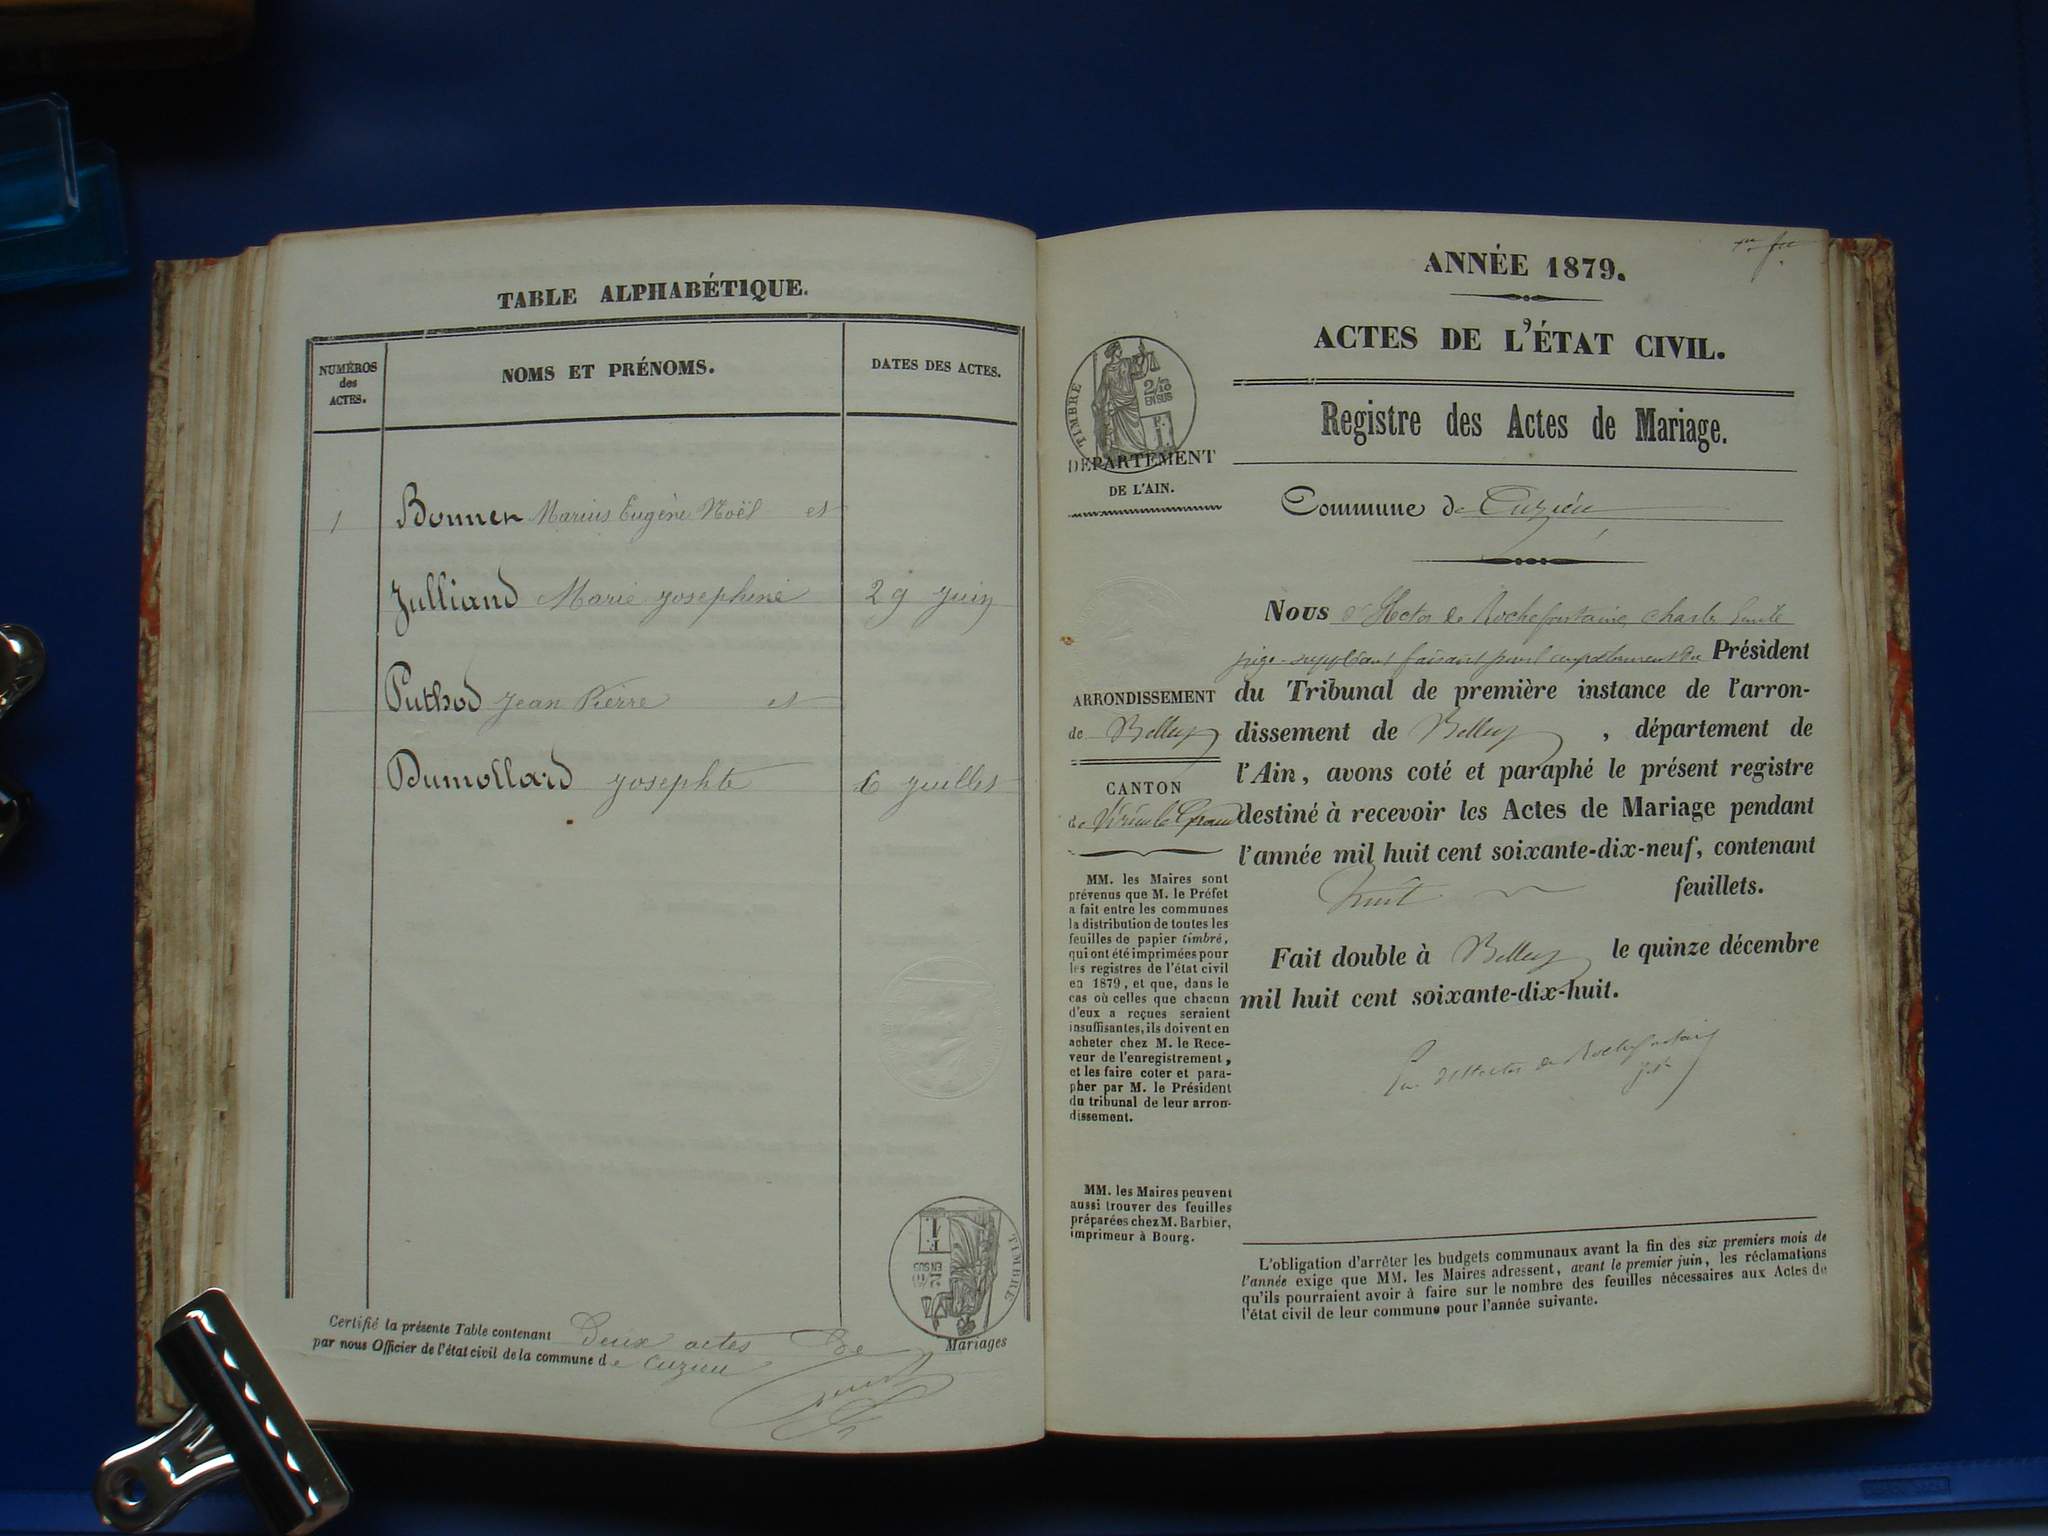 TABLE ALPHABÉTIQUE.
NUMÉROS
des
ACTES.
NOMS ET PRÉNOMS.
DATES DES ACTES.
1 Bonner Marius Eugène Noël et
Julliand Marie Josephine 29 Juin
Puthod Jean Pierre et
Dumollard Josephte 6 Juillet
Certifié la présente Table contenant Deux actes De Mariages
par nous Officier de l'état civil de la commune de Cuzieu
TIMBRE
2/10
EN SUS
1 F.
ANNÉE 1879.
ACTES DE L'ÉTAT CIVIL.
Registre des Actes de Mariage.
TIMBRE
2/10
EN SUS
1 F.
DÉPARTEMENT
DE L'AIN.
Commune de Cuzieu
ARRONDISSEMENT
de Belley
CANTON
de Virieu le Grand
MM. les Maires sont
prévenus que M. le Préfet
a fait entre les communes
la distribution de toutes les
feuilles de papier timbré,
qui ont été imprimées pour
les registres de l'état civil
en 1879, et que, dans le
cas où celles que chacun
d'eux a reçues seraient
insuffisantes, ils doivent en
acheter chez M. le Rece-
veur de l'enregistrement,
et les faire coter et para-
pher par M. le Président
du tribunal de leur arron-
dissement.
MM. les Maires peuvent
aussi trouver des feuilles
préparées chez M. Barbier,
imprimeur à Bourg.
Nous d'Hector de Rochefontaine, Charles Emile
juge-suppléant faisant pour l'empêchement du Président
du Tribunal de première instance de l'arron-
dissement de Belley, département de
l'Ain, avons coté et paraphé le présent registre
destiné à recevoir les Actes de Mariage pendant
l'année mil huit cent soixante-dix-neuf, contenant
huit feuillets.
Fait double à Belley le quinze décembre
mil huit cent soixante-dix-huit.
d'Hector de Rochefontaine
L'obligation d'arrêter les budgets communaux avant la fin des six premiers mois de
l'année exige que MM. les Maires adressent, avant le premier juin, les réclamations
qu'ils pourraient avoir à faire sur le nombre des feuilles nécessaires aux Actes de
l'état civil de leur commune pour l'année suivante.